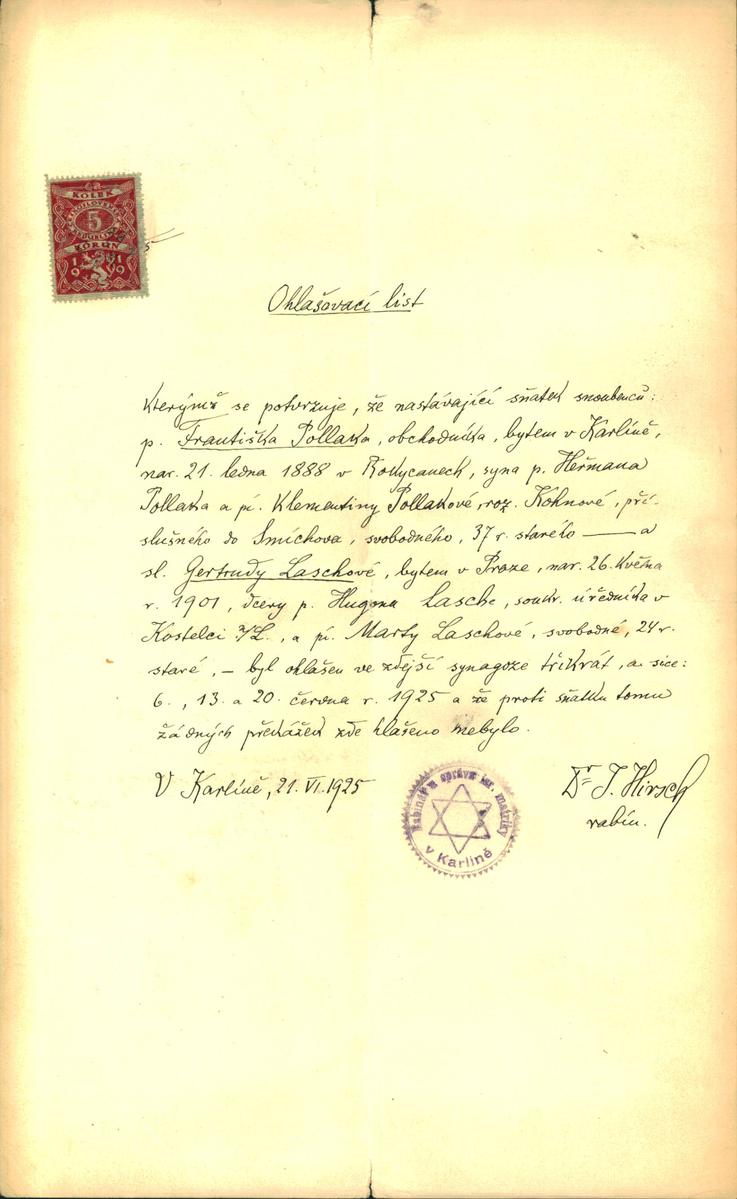 KOLEK
5
KORUN
1919
5
Ohlašovací list
Kterýmž se potvrzuje, že nastávající sňatek snoubenců:
p. Františka Pollaka, obchodníka, bytem v Karlíně,
nar. 21. ledna 1888 v Rokycanech, syna p. Heřmana
Pollaka a pí. Klementiny Pollakové, roz. Kohnové, pří-
slušného do Smíchova, svobodného, 37 r. starého — a
sl. Gertrudy Laschové, bytem v Praze, nar. 26. května
r. 1901, dcery p. Hugona Lasche, soukr. úředníka v
Kostelci n/L., a pí. Marty Laschové, svobodné, 24 r.
staré, – byl ohlášen ve zdejší synagoze třikrát, a sice:
6., 13. a 20. června r. 1925 a že proti sňatku tomu
žádných překážek zde hlášeno nebylo.
V Karlíně, 21. VI. 1925
Dr J. Hirsch
rabín.
Rabinát a správa isr. matriky
v Karlíně